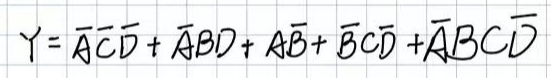 Y = A̅C̅D̅ + A̅BD + AB̅ + B̅CD̅ + A̅BCD̅